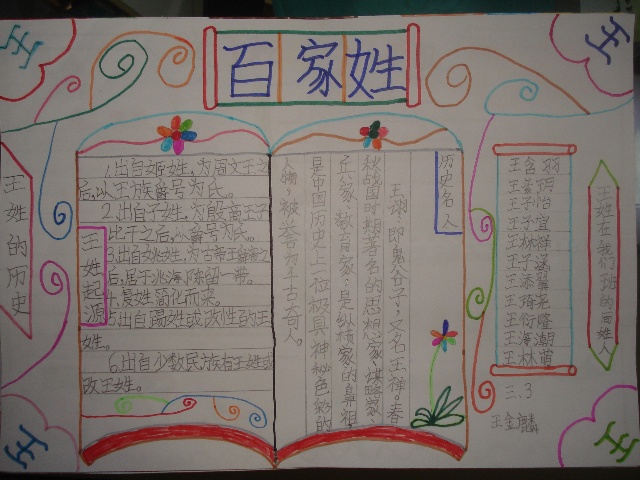 百家姓
王
王
王姓的历史
王姓起源
1.出自姬姓,为周文王之
后,以王族爵号为氏。
2.出自子姓,为殷商王子
比干之后,以爵号为氏。
3.出自妫姓,为古帝王舜帝之
后,居于洮海、陈留一带。
4.复姓简化而来。
5.出自赐姓或改姓的王
姓。
6.出自少数民族有王姓或
改王姓。
历史名人
王诩,即鬼谷子,又名王禅。春
秋战国时期著名的思想家、谋略家、
兵家、教育家,是纵横家的鼻祖,
是中国历史上一位极具神秘色彩的
人物,被誉为千古奇人。
王含羽
王子怡
王子宜
王林祥
王子涵
王添翼
王琦
王衍隆
王海潮
王林萱
王姓在我们班的百姓人
三.3
王金麟
王
王